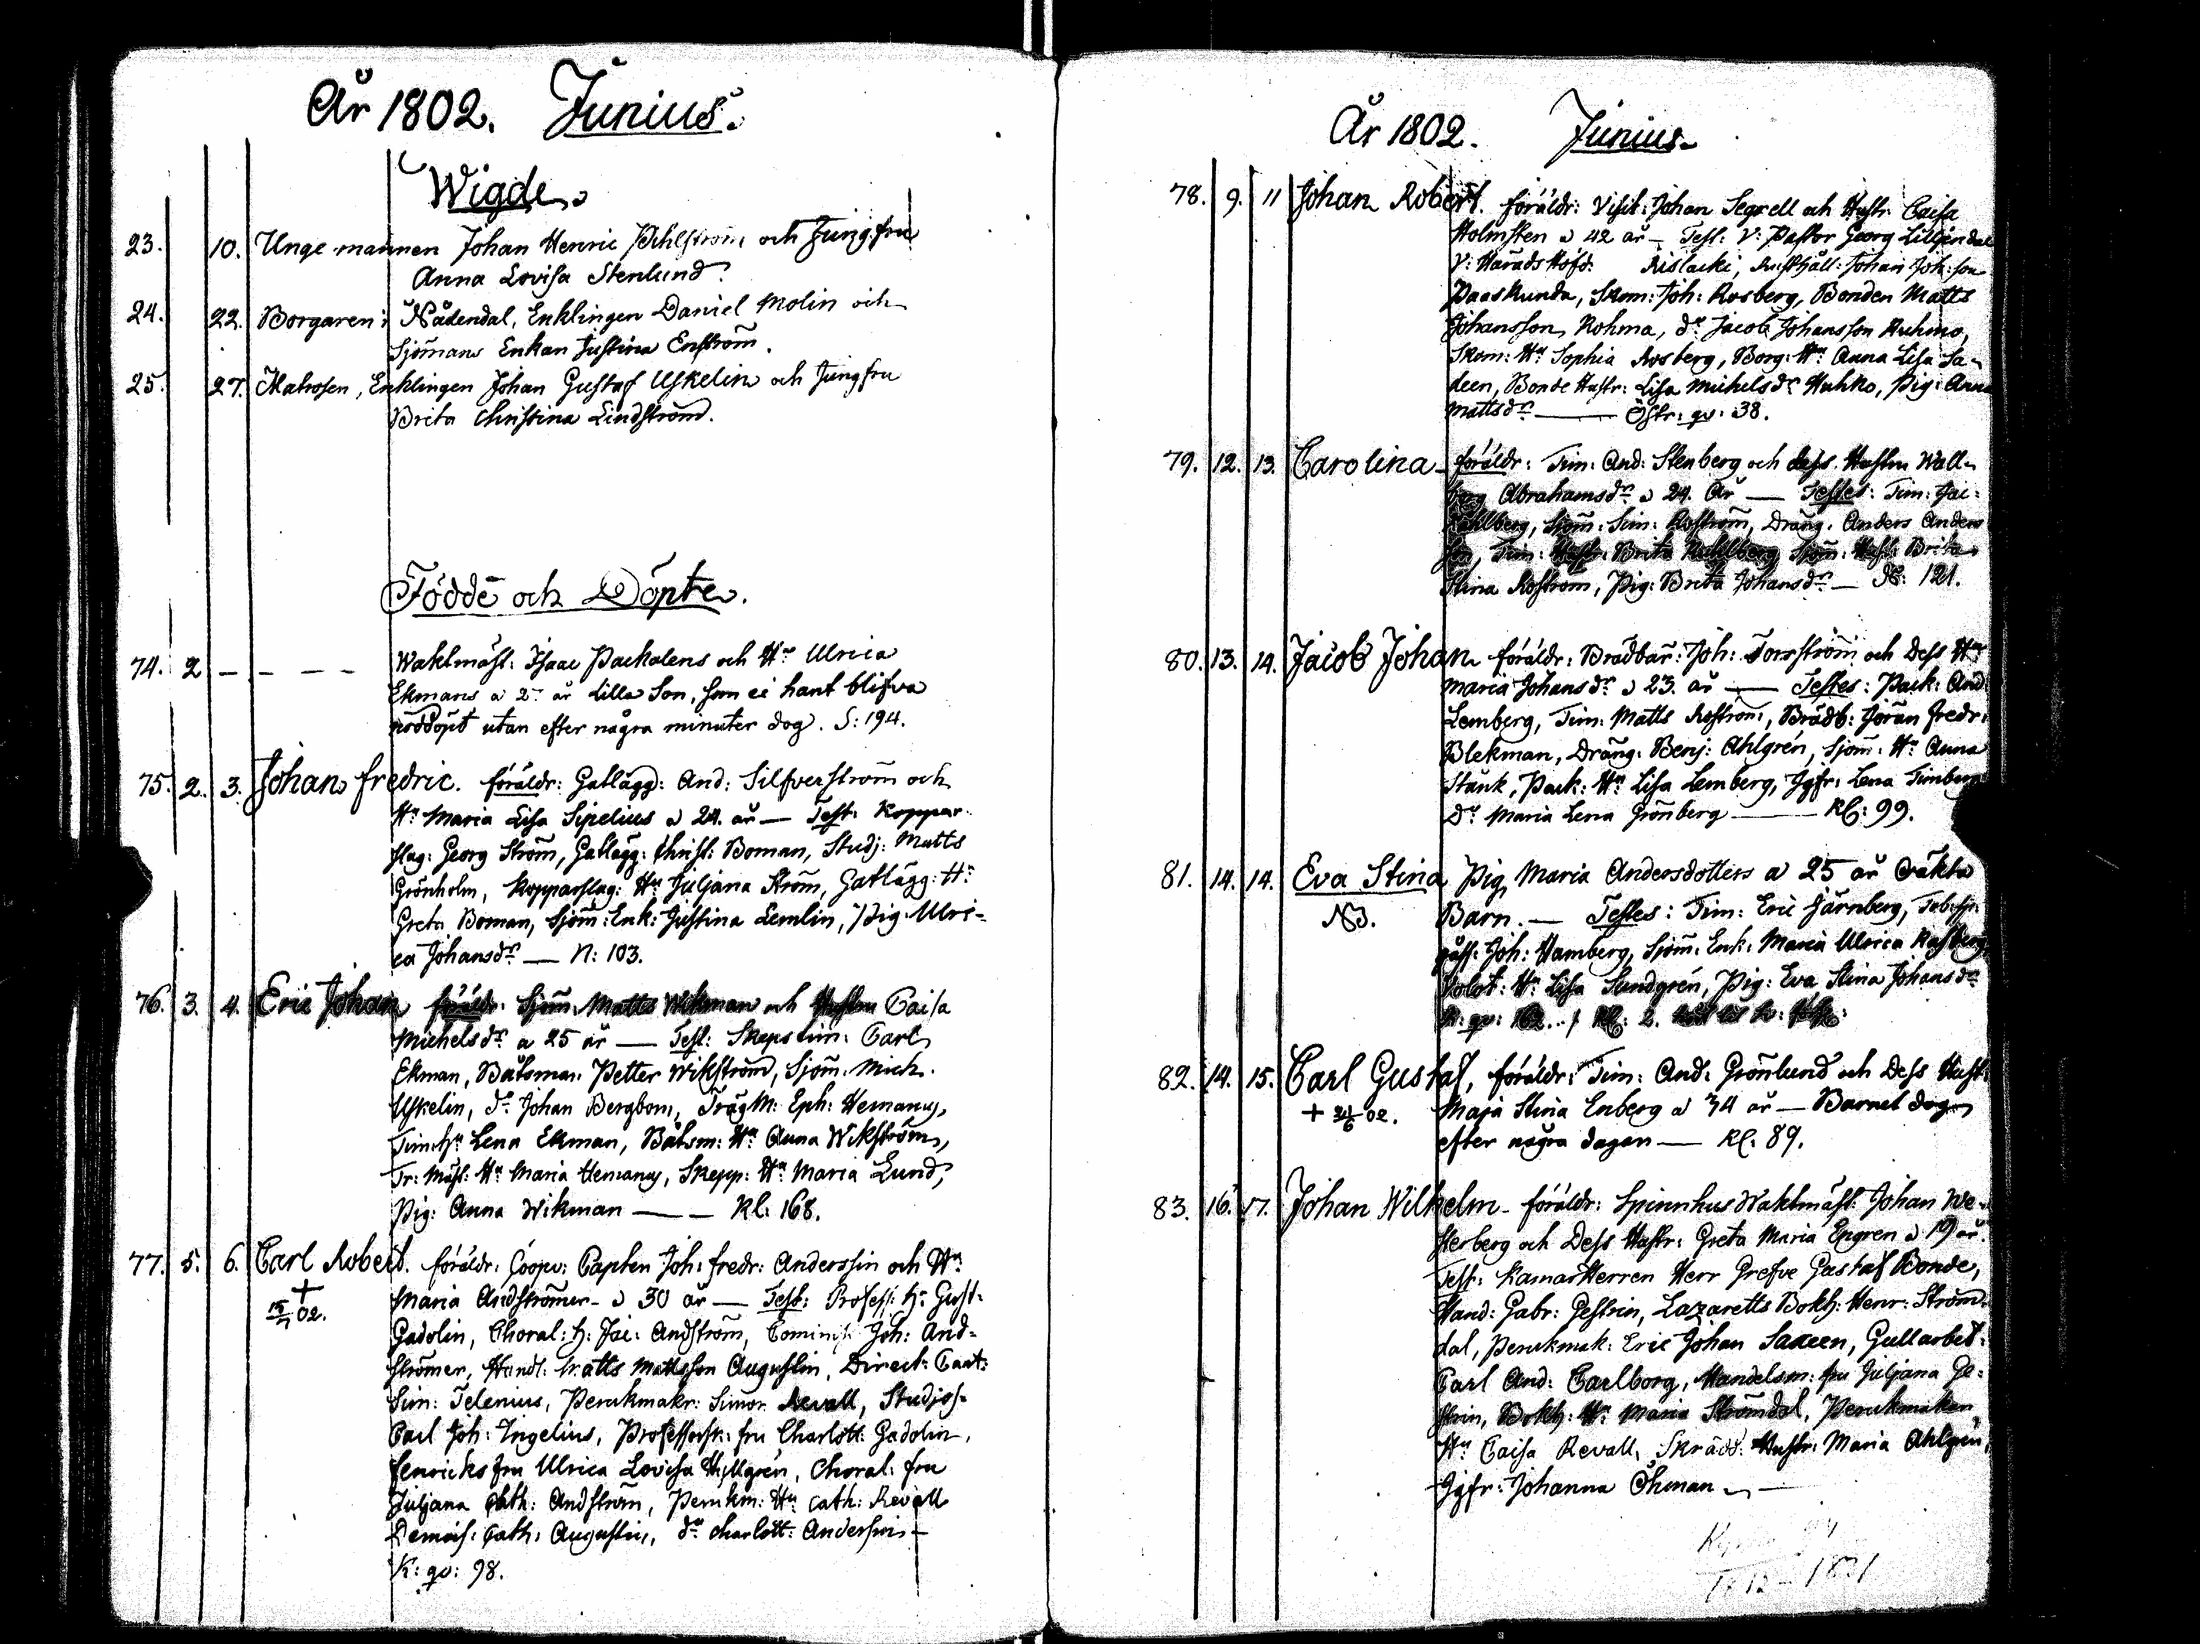 År 1802. Junius.
Wigde
23. 10. Unge mannen Johan Henric Pihlström och Jungfru
Anna Lovisa Stenlund.
24. 22. Borgaren i Nådendal, Enklingen Daniel Molin och
Sjömans Enkan Justina Enström.
25. 27. Matrosen, Enklingen Johan Gustaf Uskelin och Jungfru
Brita Christina Lindström.
Födde och Döpte.
74. 2 — — — — Waktmäst: Isaac Packalens och Hu Ulrica
Ekmans a 2- år lilla Son, som ei hant blifva
nöddöpt utan efter några minuter dog. S: 194.
75. 2. 3. Johan Fredric. föräldr: Gatlägg: And: Silfverström och
Hu Maria Lisa Sipelius a 24. år — Test: Koppar
slag: Georg Ström, Gatlägg: Christ: Boman, Studj: Matts
Grönholm, Kopparslag: Hu Juljana Ström, Gatlägg: Hu
Greta Boman, Sjöm: Enk: Justina Lemlin, Pig: Ulri-
ca Johansdr — N: 103.
76. 3. 4. Eric Johan föräldr: Sjöm: Matts Wikman och Hustru Caisa
Michelsdr a 25 år — Test: Skepstim: Carl
Ekman, Båtsman: Petter Wikström, Sjöm. Mich.
Uskelin, do Johan Bergbom, TrägM: Eph: Hemanus,
Timhu Lena Ekman, Båtsm: Hu Anna Wikström,
Tr: Mäst: Hu Maria Hemanus, Skepp: Hu Maria Lund,
Pig: Anna Wikman — — Kl: 168.
77. 5. 6. Carl Robert. föräldr: Coopv: Capten Joh: Fredr: Anderssin och Hu
+ Maria Andströmer - a 30 år — Test: Profess: Hr Gust:
02. Gadolin, Choral: H: Jac: Andström, Joh: And-
strömer, Handl: Matts Mattsson Augustin, Direct: Cant:
Sim: Telenius, Perukmakr: Simon Revall, Studjos:
Carl Joh: Ingelius, Professorsk: fru Charlott: Gadolin,
fenriks fru Ulrica Lovisa Hyllgrén, Choral: fru
Juljana Cath: Andström, Perukm: Hu Cath: Revall
Demois: Cath: Augustin, do Charlott: Anderssin —
K: qv: 98.
År 1802. Junius.
78. 9. 11 Johan Robert. föräldr: Visit: Johan Segrell och Hustr. Caisa
Holmsten a 42 år — Test: V: Pastor Georg Lilljendal
V: HäradsHöfd: Rislacki, Johan Joh:son
Paaskunda, Skom: Joh: Rosberg, Bonden Matts
Johansson Rohma, do Jacob Johansson Huhmo,
Skom: Hu Sophia Rosberg, Borg: Hu Anna Lisa Sa-
deen, Bonde Hustr: Lisa Michelsdr Huhko, Pig: Anna
Mattsdr — Östr: qv: 38.
79. 12. 13. Carolina - föräldr: Tim: And: Stenberg och dess Hustru Wall-
borg Abrahamsdr a 24. år — Testes: Tim: Jac:
Kahlberg, Sjöm: Sim: Roström, Dräng: Anders Anders
son, Tim: Hustr: Brita Kahlberg Sjöm: Hust: Brita
Stina Roström, Pig: Brita Johansdr — N: 121.
80. 13. 14. Jacob Johan föräldr: Brädbär: Joh: Forsström och Dess Hu
Maria Johansdr a 23. år — Testes: Pack: And:
Lemberg, Tim: Matts Roström, Brädb: Jöran Fredr:
Blekman, Dräng: Benj: Ahlgrén, Sjöm: Hu Anna
Stank, Pack: Hu Lisa Lemberg, Jgfr: Lena Timberg
Do Maria Lena Grönberg — Kl: 99.
81. 14. 14. Eva Stina Pig Maria Andersdotters a 25 år oäkta
NB. Barn. — Testes: Tim: Eric Järnberg,
Joh: Hamberg, Sjöm: Enk: Maria Ulrica Rasberg
Volot: Hu Lisa Sundgrén, Pig: Eva Stina Johansdr
82. 14. 15. Carl Gustaf, föräldr: Tim: And: Grönlund och Dess Hust:
+ 21/6 02. Maja Stina Enberg a 34 år — Barnet dog
efter några dagar — Kl: 89.
83. 16. 17. Johan Wilhelm - föräldr: SpinnhusWaktmäst: Johan We-
sterberg och Dess Hustr: Greta Maria Engren a 19 år.
Test: KamarHerren Herr Grefve Gustaf Bonde,
Hand: Gabr: Gestrin, Lazaretts Bokh: Henr: Ström-
dal, Perukmak: Eric Johan Saxeen, Gullarbet:
Carl And: Carlborg, Handelsm: fru Juljana Ge-
strin, Bokh: Hu Maria Strömdal, Perukmakan
Hu Caisa Revall, Skrädd: Hustr: Maria Ahlgren,
Jgfr: Johanna Öhman